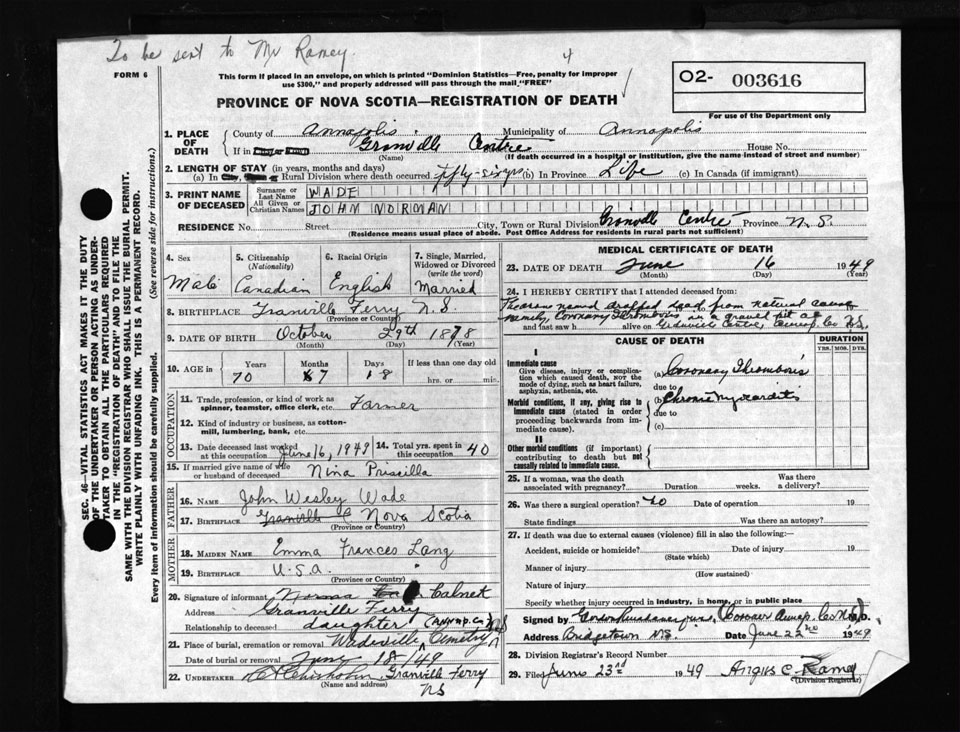 To be sent to Mr Ramey.
4
FORM 6
This form if placed in an envelope, on which is printed "Dominion Statistics—Free, penalty for improper
use $300," and properly addressed will pass through the mail "FREE"
O2- 003616
For use of the Department only
PROVINCE OF NOVA SCOTIA—REGISTRATION OF DEATH
SEC. 46—VITAL STATISTICS ACT MAKES IT THE DUTY
OF THE UNDERTAKER OR PERSON ACTING AS UNDER-
TAKER TO OBTAIN ALL THE PARTICULARS REQUIRED
IN THE "REGISTRATION OF DEATH" AND TO FILE THE
SAME WITH THE DIVISION REGISTRAR WHO SHALL ISSUE THE BURIAL PERMIT.
WRITE PLAINLY WITH UNFADING INK. THIS IS A PERMANENT RECORD.
Every item of information should be carefully supplied. (See reverse side for instructions.)
1. PLACE OF DEATH County of Annapolis Municipality of Annapolis
If in City or Town Granville Centre House No.
(Name) (If death occurred in a hospital or institution, give the name instead of street and number)
2. LENGTH OF STAY (in years, months and days)
(a) In City, Town or Rural Division where death occurred fifty-six yrs (b) In Province Life (c) In Canada (if immigrant)
3. PRINT NAME OF DECEASED Surname or Last Name WADE
All Given or Christian Names JOHN NORMAN
RESIDENCE No. Street City, Town or Rural Division Granville Centre Province N.S.
(Residence means usual place of abode. Post Office Address for residents in rural parts not sufficient)
4. Sex 5. Citizenship (Nationality) 6. Racial Origin 7. Single, Married, Widowed or Divorced (write the word)
Male Canadian English Married
8. BIRTHPLACE Granville Ferry N.S.
(Province or Country)
9. DATE OF BIRTH October 29th 1878
(Month) (Day) (Year)
10. AGE in Years Months Days If less than one day old
70 7 18 hrs. or min.
OCCUPATION
11. Trade, profession, or kind of work as
spinner, teamster, office clerk, etc. Farmer
12. Kind of industry or business, as cotton-
mill, lumbering, bank, etc.
13. Date deceased last worked at this occupation June 16, 1949 14. Total yrs. spent in this occupation 40
15. If married give name of wife
or husband of deceased Nina Priscilla
FATHER
16. NAME John Wesley Wade
17. BIRTHPLACE Granville C Nova Scotia
(Province or Country)
MOTHER
18. MAIDEN NAME Emma Frances Lang
19. BIRTHPLACE U.S.A.
(Province or Country)
20. Signature of informant Norma Calnek
Address Granville Ferry
Relationship to deceased daughter (Annap. Co.) NS
21. Place of burial, cremation or removal Wadeville Cemetry
Date of burial or removal June 18/49
22. UNDERTAKER Chisholm Granville Ferry
(Name and address)
NS
MEDICAL CERTIFICATE OF DEATH
23. DATE OF DEATH June 16 1949
(Month) (Day) (Year)
24. I HEREBY CERTIFY that I attended deceased from:
dropped dead from natural cause
namely, Coronary Thrombosis in a gravel pit at
and last saw h alive on Centre, Annap. Co N.S.
CAUSE OF DEATH DURATION
YRS. MOS. DYS.
I
Immediate cause
Give disease, injury or compli-
cation which caused death, not the
mode of dying, such as heart failure,
asphyxia, asthenia, etc.
(a) Coronary Thrombosis
due to
Morbid conditions, if any, giving rise to
immediate cause (stated in order
proceeding backwards from im-
mediate cause).
(b) Chronic Myocarditis
due to
(c)
II
Other morbid conditions (if important)
contributing to death but not
causally related to immediate cause.
25. If a woman, was the death associated with pregnancy? Duration weeks. Was there a delivery?
26. Was there a surgical operation? no Date of operation 19
State findings Was there an autopsy?
27. If death was due to external causes (violence) fill in also the following:—
Accident, suicide or homicide? Date of injury 19
(State which)
Manner of injury
(How sustained)
Nature of injury
Specify whether injury occurred in industry, in home, or in public place
Signed by (Coroner Annap. Co N.S.)
Address Bridgetown N.S. Date June 22nd 1949
28. Division Registrar's Record Number
29. Filed June 23rd 1949 Angus C. Ramey
(Division Registrar)